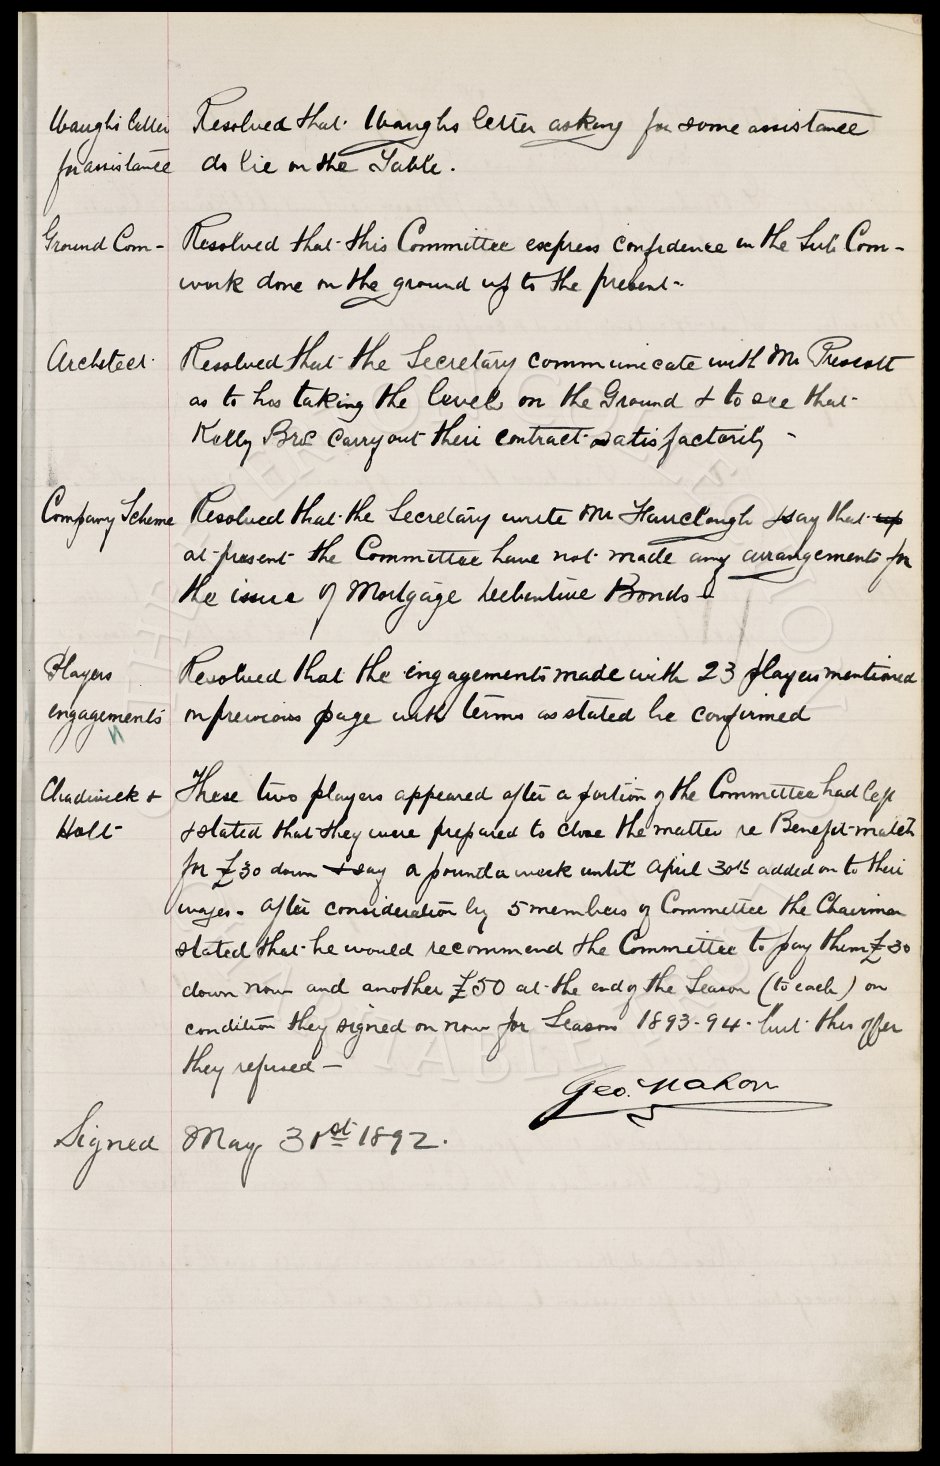 Waughs letter Resolved that Waughs letter asking for some assistance
for assistance do lie on the Table.
Ground Com- Resolved that this Committee express confidence in the Sub Com-
work done on the ground up to the present-
Architect Resolved that the Secretary communicate with Mr Prescott
as to his taking the levels on the Ground & to see that
Kelly Bros carry out their contract satisfactorily -
Company Scheme Resolved that the Secretary write Mr Fairclough & say that up
at present the Committee have not made any arrangements for
the issue of Mortgage Debenture Bonds -
Players Resolved that the engagements made with 23 players mentioned
engagements on previous page with terms as stated be confirmed
Chadwick & These two players appeared after a portion of the Committee had left
Holt & stated that they were prepared to close the matter re Benefit match
for £30 down & say a pound a week until April 30th added on to their
wages. After consideration by 5 members of Committee the Chairman
stated that he would recommend the Committee to pay them £30
down now and another £50 at the end of the Season (to each) on
condition they signed on now for Season 1893-94 - but this offer
they refused -
Geo. Mahon
Signed May 31st 1892.